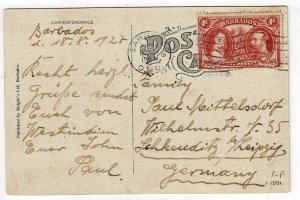 CORRESPONDENCE
Barbados
d. 18.8.1927
Recht herzl.
Grüße sendet
Euch von
Westindien
Euer Sohn
Paul.
Published by Knight's Ltd. Barbados.
POST CARD
1d BARBADOS 1d
Family
Paul Mittelsdorf
Wilhelmstr. 35
Schkeuditz b/Leipzig
Germany
P-P